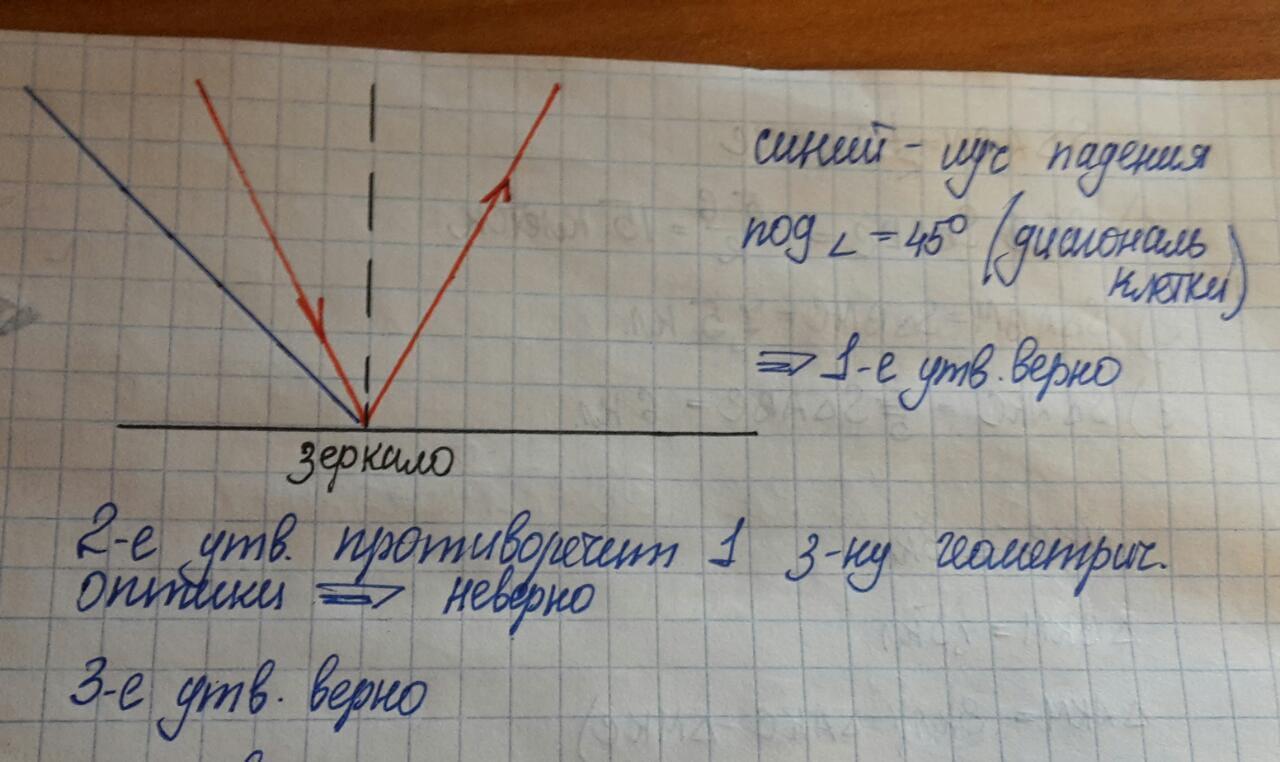 синий - луч падения
под ∠ = 45° (диагональ
клетки)
⇒ 1-е утв. верно
зеркало
2-е утв. противоречит 1 з-ну геометрич.
оптики ⇒ неверно
3-е утв. верно